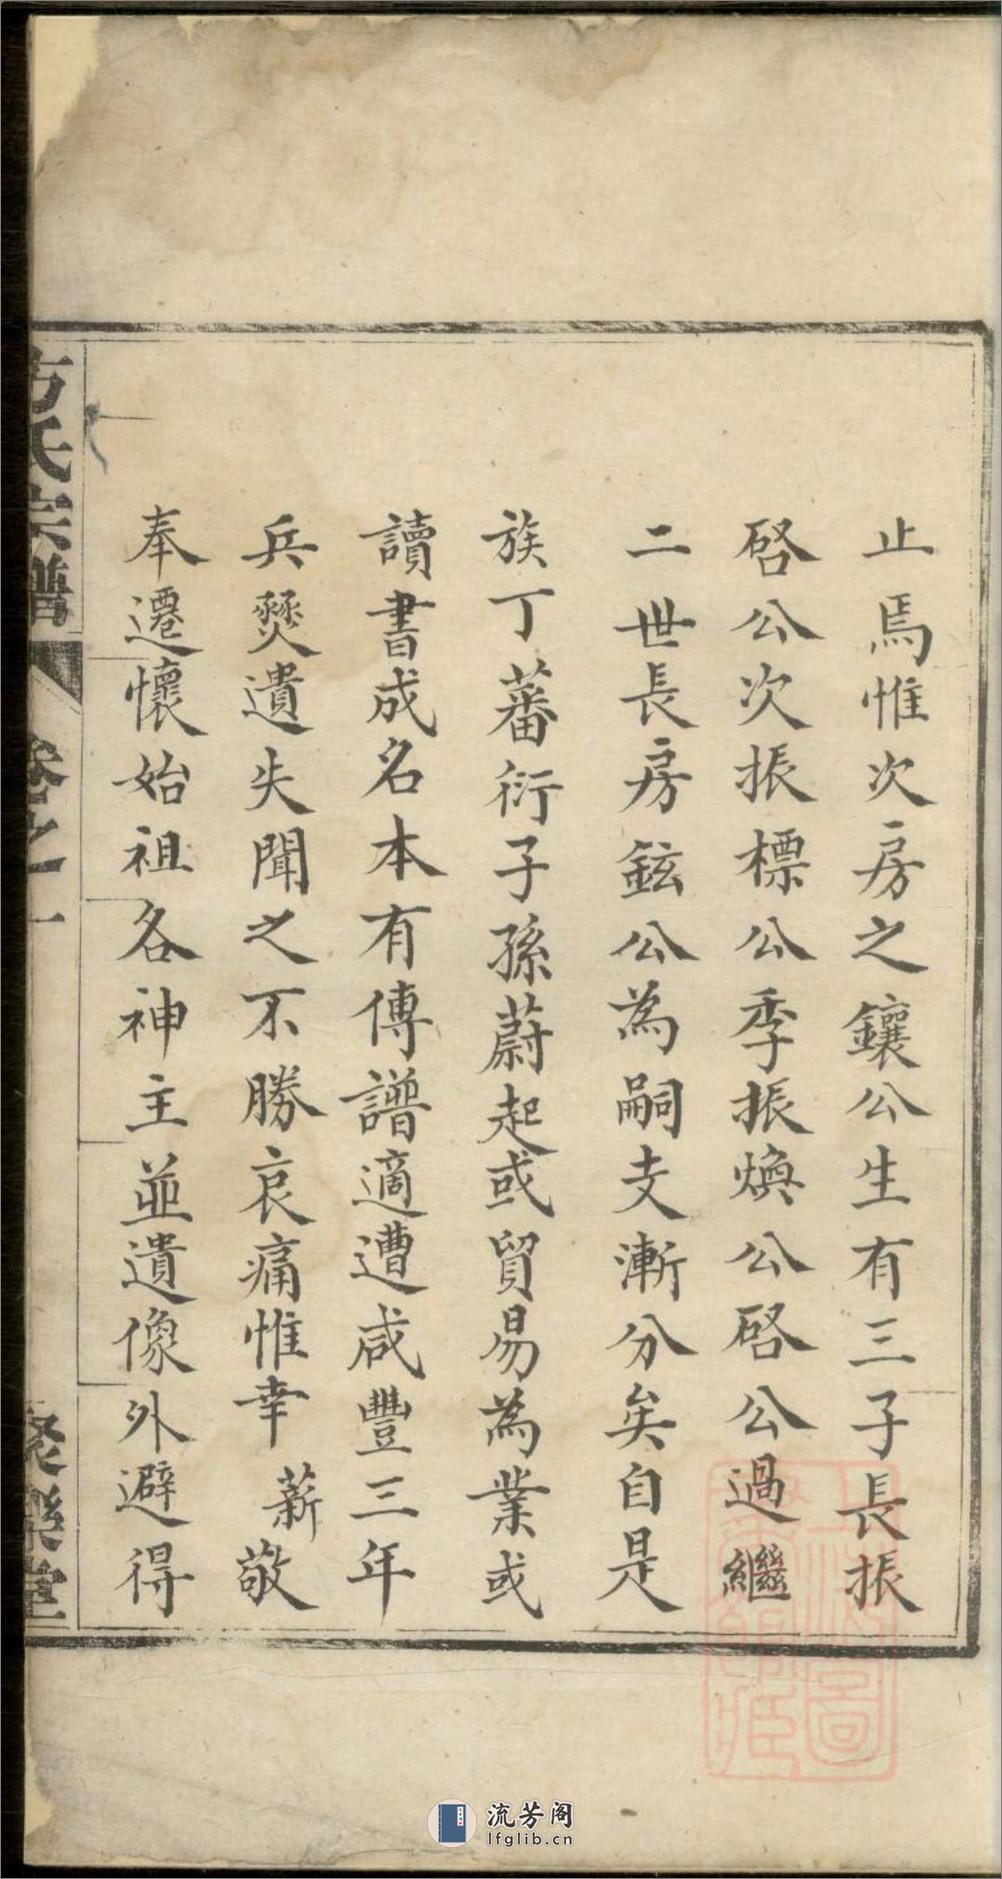 止焉惟次房之鑲公生有三子長振
啓公次振標公季振煥公啓公過繼
二世長房鉉公為嗣支漸分矣自是
族丁蕃衍子孫蔚起或貿易為業或
讀書成名本有傳譜適遭咸豐三年
兵燹遺失聞之不勝哀痛惟幸薪敬
奉遷懷始祖各神主並遺像外避得
方氏宗譜
卷之一
聚樂堂
流芳阁
lfglib.cn